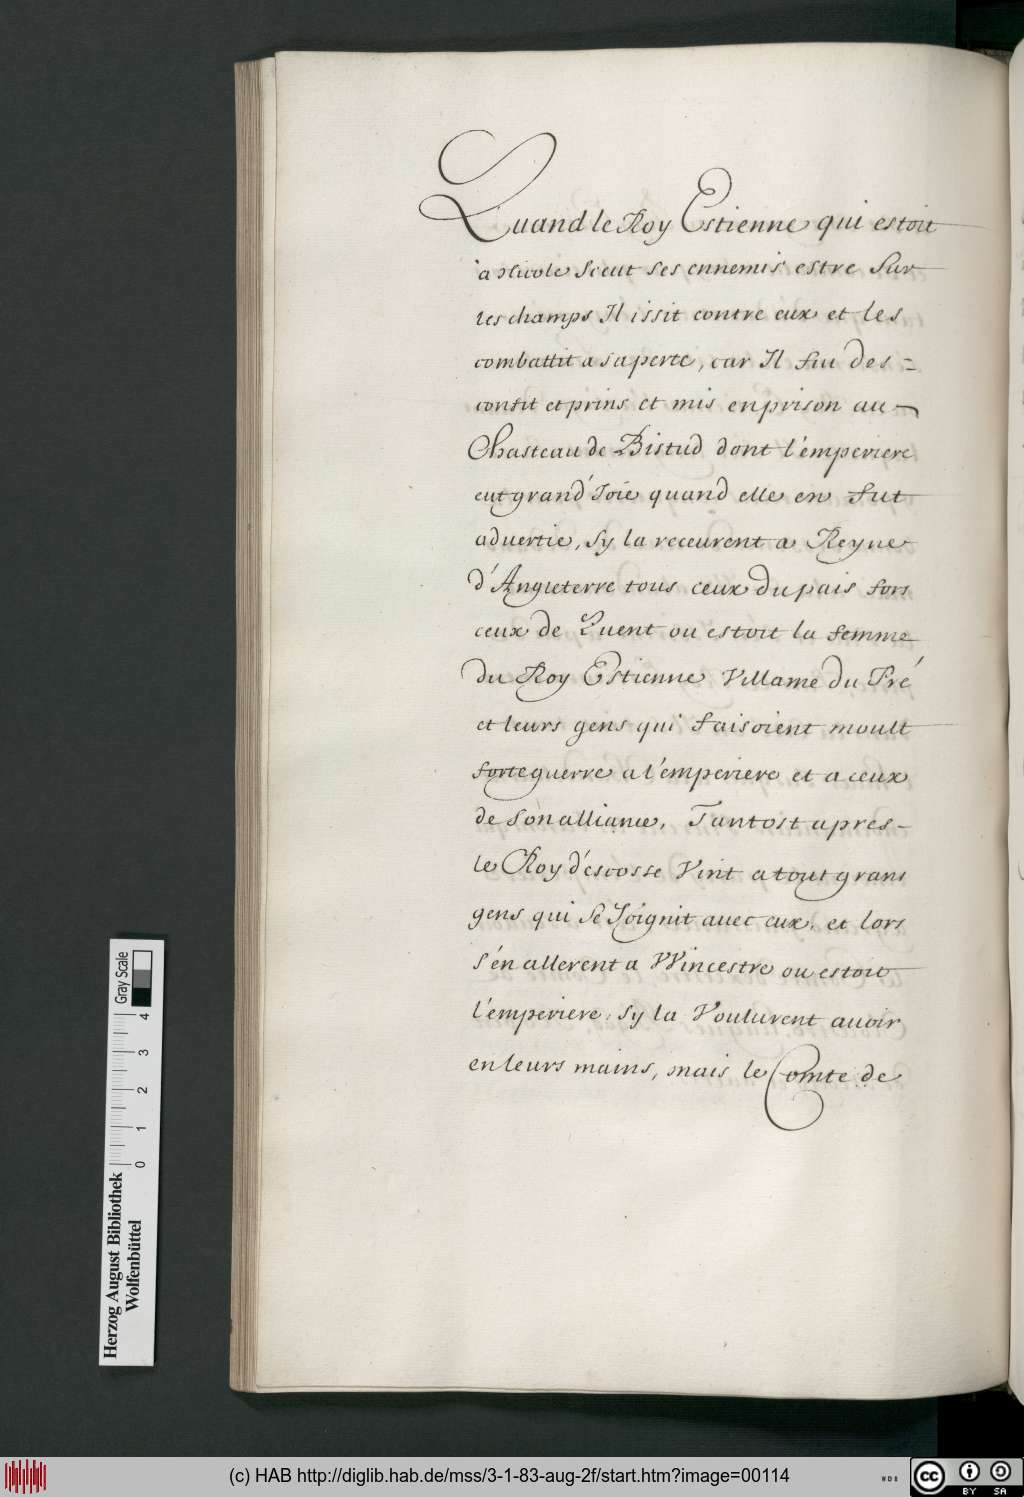 Quand le Roy Estienne qui estoit
a Nicole Sceut ses ennemis estre Sur
les champs Il issit contre eux et les
combattit a sa perte, car Il fut des=
confit et prins et mis en prison au
Chasteau de Bistud dont l'emperiere
eut grand Joie quand elle en fut
advertie, Sy la receurent a Reyne
d'Angleterre tous ceux du pais fors
ceux de Quent ou estoit la femme
du Roy Estienne Villame du Pré
et leurs gens qui faisoient moult
forte guerre a l'emperiere et a ceux
de son alliance, Tantost apres-
le Roy d'escosse Vint a tout grans
gens qui se Joignit avec eux, et lors
s'en allerent a Wincestre ou estoit
l'emperiere, Sy la Voulurent avoir
en leurs mains, mais le Comte de
Gray Scale
0 1 2 3 4
Herzog August Bibliothek
Wolfenbüttel
(c) HAB http://diglib.hab.de/mss/3-1-83-aug-2f/start.htm?image=00114
WDB
CC
BY SA